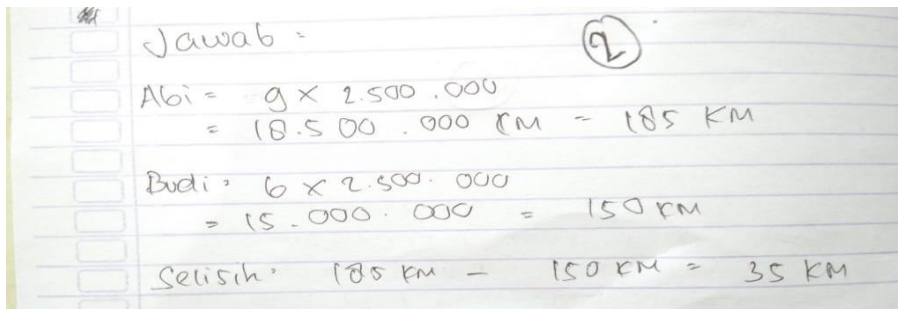 Jawab =
2
Abi = 9 × 2.500.000
= 18.500.000 CM = 185 KM
Budi = 6 × 2.500.000
= 15.000.000 = 150 KM
Selisih = 185 KM - 150 KM = 35 KM